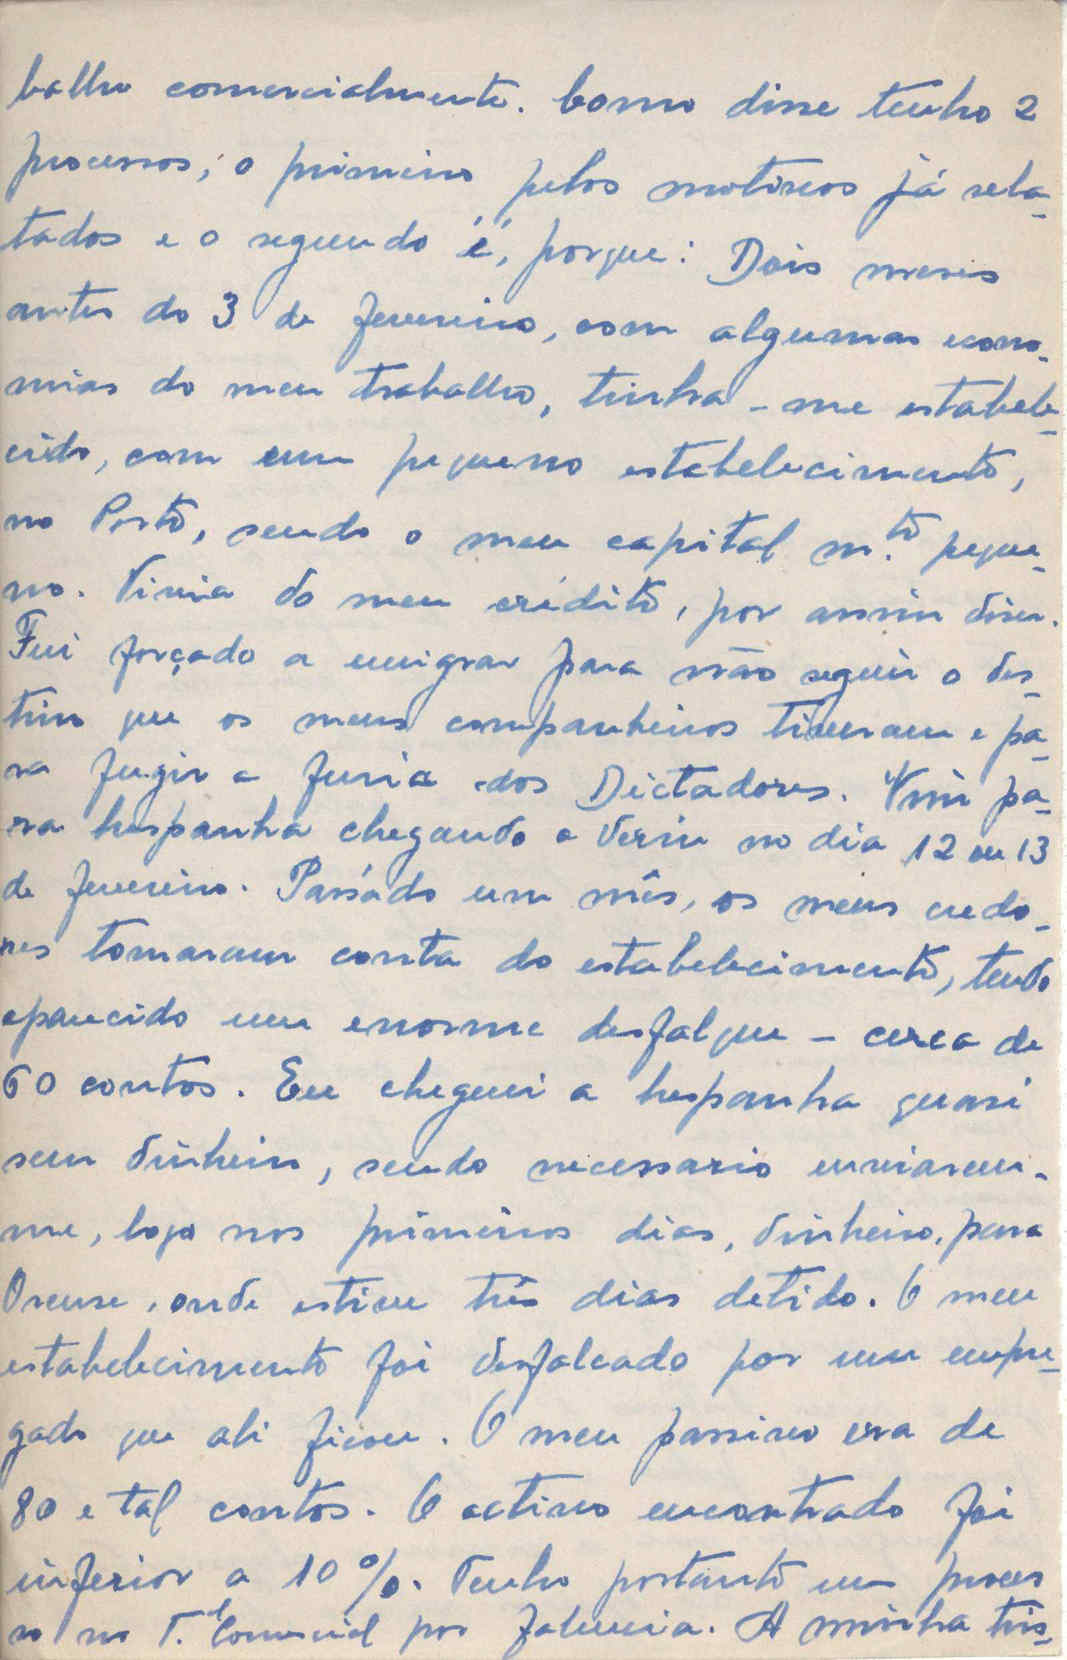 balho comercialmente. Como disse tenho 2
processos, o primeiro pelos motivos já rela-
tados e o segundo é, porque: Dois meses
antes do 3 de fevereiro, com algumas econo-
mias do meu trabalho, tinha-me estabele-
cido, com um pequeno estabelecimento,
no Porto, sendo o meu capital m.to peque-
no. Vivia do meu crédito, por assim diser.
Fui forçado a emigrar para não seguir o des-
tino que os meus companheiros tiveram e pa-
ra fugir a furia dos Dictadores. Vim pa-
ra hespanha chegando a Verin no dia 12 ou 13
de fevereiro. Passado um mês, os meus credo-
res tomaram conta do estabelecimento, tendo
aparecido um enorme desfalque - cerca de
60 contos. Eu cheguei a hespanha quasi
sem dinheiro, sendo necessario enviarem-
me, logo nos primeiros dias, dinheiro, para
Orense, onde estive três dias detido. O meu
estabelecimento foi desfalcado por um empre-
gado que ali ficou. O meu passivo era de
80 e tal contos. O activo encontrado foi
inferior a 10%. Tenho portanto um proces
so no T. Comercial por falencia. A minha tris-